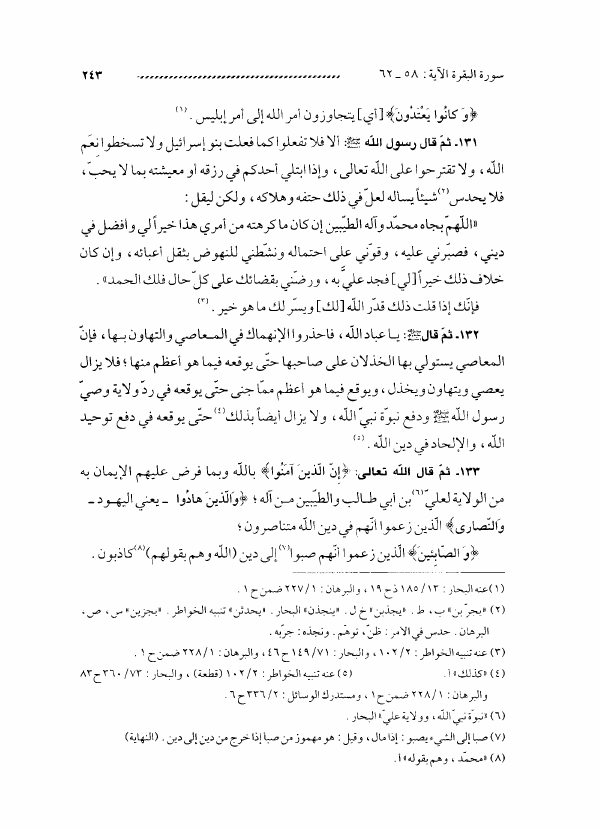 سورة البقرة الآية: ٥٨ ـ ٦٢ ٢٤٣
﴿وَ كانُوا يَعْتَدُونَ﴾ [أي] يتجاوزون أمر الله إلى أمر إبليس. (١)
١٣١ـ ثمّ قال رسول الله ﷺ: ألا فلا تفعلوا كما فعلت بنو إسرائيل ولا تسخطوا نِعَم
الله، ولا تقترحوا على الله تعالى، وإذا ابتلي أحدكم في رزقه أو معيشته بما لا يحبّ،
فلا يحدس(٢) شيئاً يسأله لعلّ في ذلك حتفه وهلاكه، ولكن ليقل:
«اللّهمّ بجاه محمّد وآله الطيّبين إن كان ما كرهته من أمري هذا خيراً لي وأفضل في
ديني، فصبّرني عليه، وقوّني على احتماله ونشّطني للنهوض بثقل أعبائه، وإن كان
خلاف ذلك خيراً [لي] فجد عليَّ به، ورضّني بقضائك على كلّ حال فلك الحمد».
فإنّك إذا قلت ذلك قدّر الله [لك] ويسّر لك ما هو خير. (٣)
١٣٢ـ ثمّ قال ﷺ: يا عباد الله، فاحذروا الإنهماك في المعاصي والتهاون بها، فإنّ
المعاصي يستولي بها الخذلان على صاحبها حتّى يوقعه فيما هو أعظم منها؛ فلا يزال
يعصي ويتهاون ويخذل، ويوقع فيما هو أعظم ممّا جنى حتّى يوقعه في ردّ ولاية وصيّ
رسول الله ﷺ ودفع نبوّة نبيّ الله، ولا يزال أيضاً بذلك(٤) حتّى يوقعه في دفع توحيد
الله، والإلحاد في دين الله. (٥)
١٣٣ـ ثمّ قال الله تعالى: ﴿إِنّ الّذينَ آمَنُوا﴾ بالله وبما فرض عليهم الإيمان به
من الولاية لعليّ(٦) بن أبي طالب والطيّبين من آله؛ ﴿وَالّذينَ هادُوا ـ يعني اليهود ـ
وَالنّصارى﴾ الّذين زعموا أنّهم في دين الله متناصرون؛
﴿وَ الصّابِئينَ﴾ الّذين زعموا أنّهم صبوا(٧) إلى دين (الله وهم بقولهم)(٨) كاذبون.
(١) عنه البحار: ١٣ / ١٨٥ ذح ١٩، والبرهان: ١ / ٢٢٧ ضمن ح ١.
(٢) «يجرّ بن» ب، ط. «يجذبن» خ ل. «ينجذن» البحار. «يحدثن» تنبيه الخواطر. «يجزين» س، ص،
البرهان. حدس في الامر: ظنّ، توهّم. ونجذه: جرّبه.
(٣) عنه تنبيه الخواطر: ٢ / ١٠٢، والبحار: ٧١ / ١٤٩ ح ٤٦، والبرهان: ١ / ٢٢٨ ضمن ح ١.
(٤) «كذلك» أ. (٥) عنه تنبيه الخواطر: ٢ / ١٠٢ (قطعة)، والبحار: ٧٣ / ٣٦٠ ح ٨٣
والبرهان: ١ / ٢٢٨ ضمن ح ١، ومستدرك الوسائل: ٢ / ٣٣٦ ح ٦.
(٦) «نبوّة نبيّ الله، وولاية عليّ» البحار.
(٧) صبا إلى الشيء يصبو: إذا مال، وقيل: هو مهموز من صبأ إذا خرج من دين إلى دين. (النهاية)
(٨) «محمّد، وهم بقوله» أ.